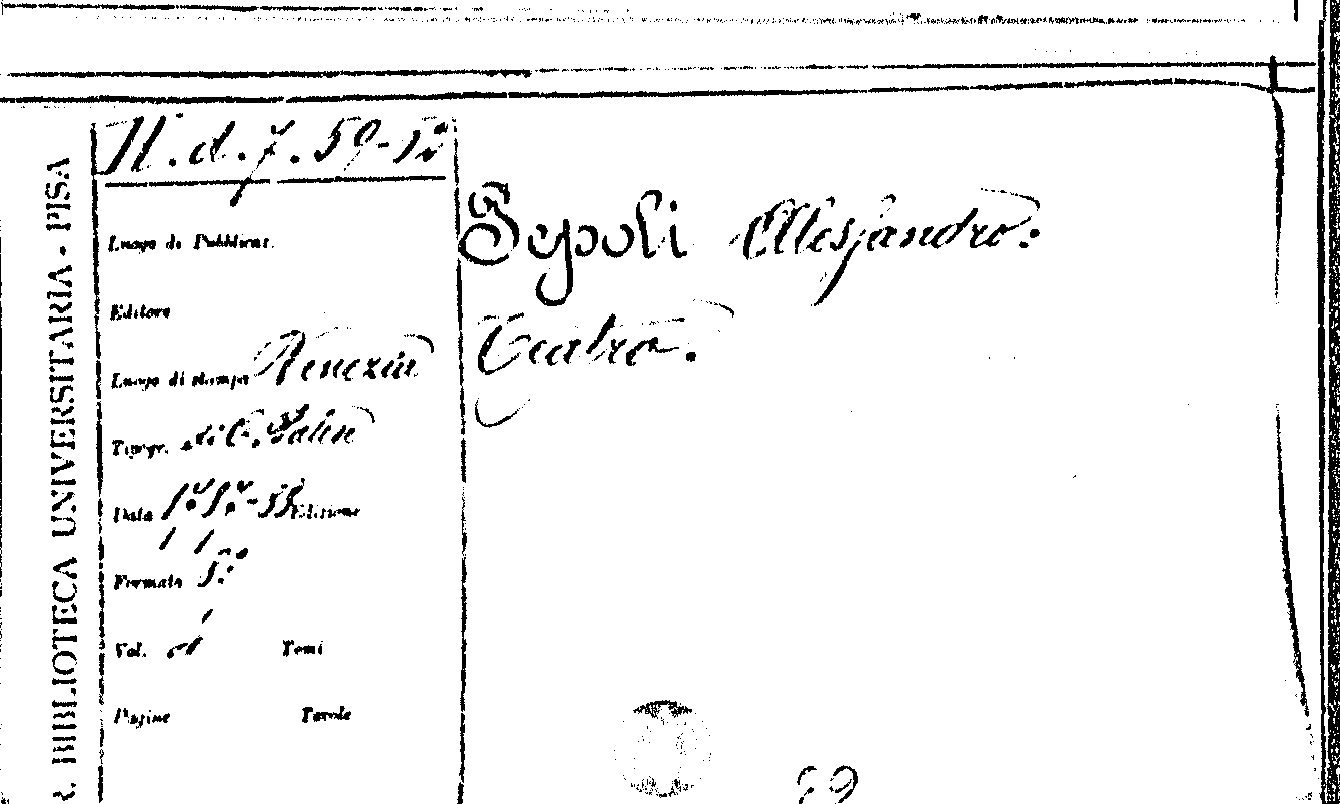 R. BIBLIOTECA UNIVERSITARIA - PISA
H. d. 7. 59-
Luogo di Pubblicaz.
Editore
Luogo di stampa Venezia
Tipogr. di C. Palese
Data
Edizione
Formato 8.°
Vol.
Tomi
Pagine
Tavole
Pepoli Alessandro.
Teatro.
89